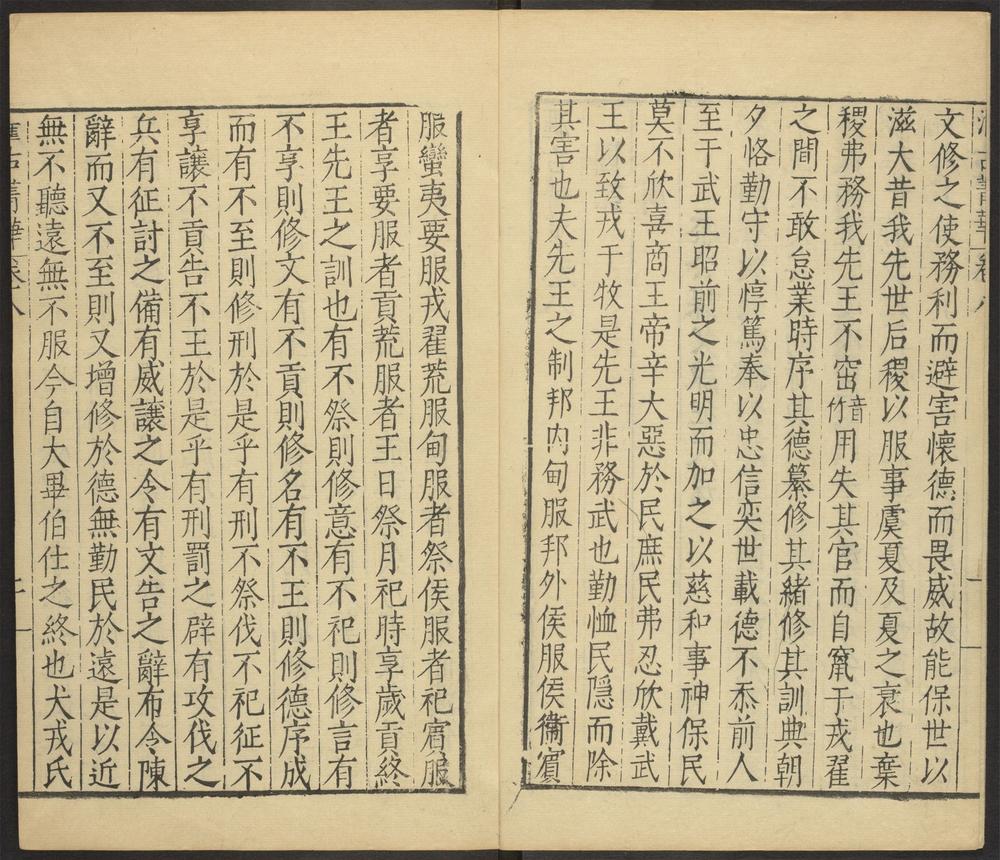 文修之使務利而避害懷德而畏威故能保世以
滋大昔我先世后稷以服事虞夏及夏之衰也棄
稷弗務我先王不窋音竹用失其官而自竄于戎翟
之間不敢怠業時序其德纂修其緒修其訓典朝
夕恪勤守以惇篤奉以忠信奕世載德不忝前人
至于武王昭前之光明而加之以慈和事神保民
莫不欣喜商王帝辛大惡於民庶民弗忍欣戴武
王以致戎于牧是先王非務武也勤恤民隱而除
其害也夫先王之制邦內甸服邦外侯服侯衞賓
服蠻夷要服戎翟荒服甸服者祭侯服者祀賓服
者享要服者貢荒服者王日祭月祀時享歲貢終
王先王之訓也有不祭則修意有不祀則修言有
不享則修文有不貢則修名有不王則修德序成
而有不至則修刑於是乎有刑不祭伐不祀征不
享讓不貢告不王於是乎有刑罰之辟有攻伐之
兵有征討之備有威讓之令有文告之辭布令陳
辭而又不至則又增修於德無勤民於遠是以近
無不聽遠無不服今自大畢伯仕之終也犬戎氏